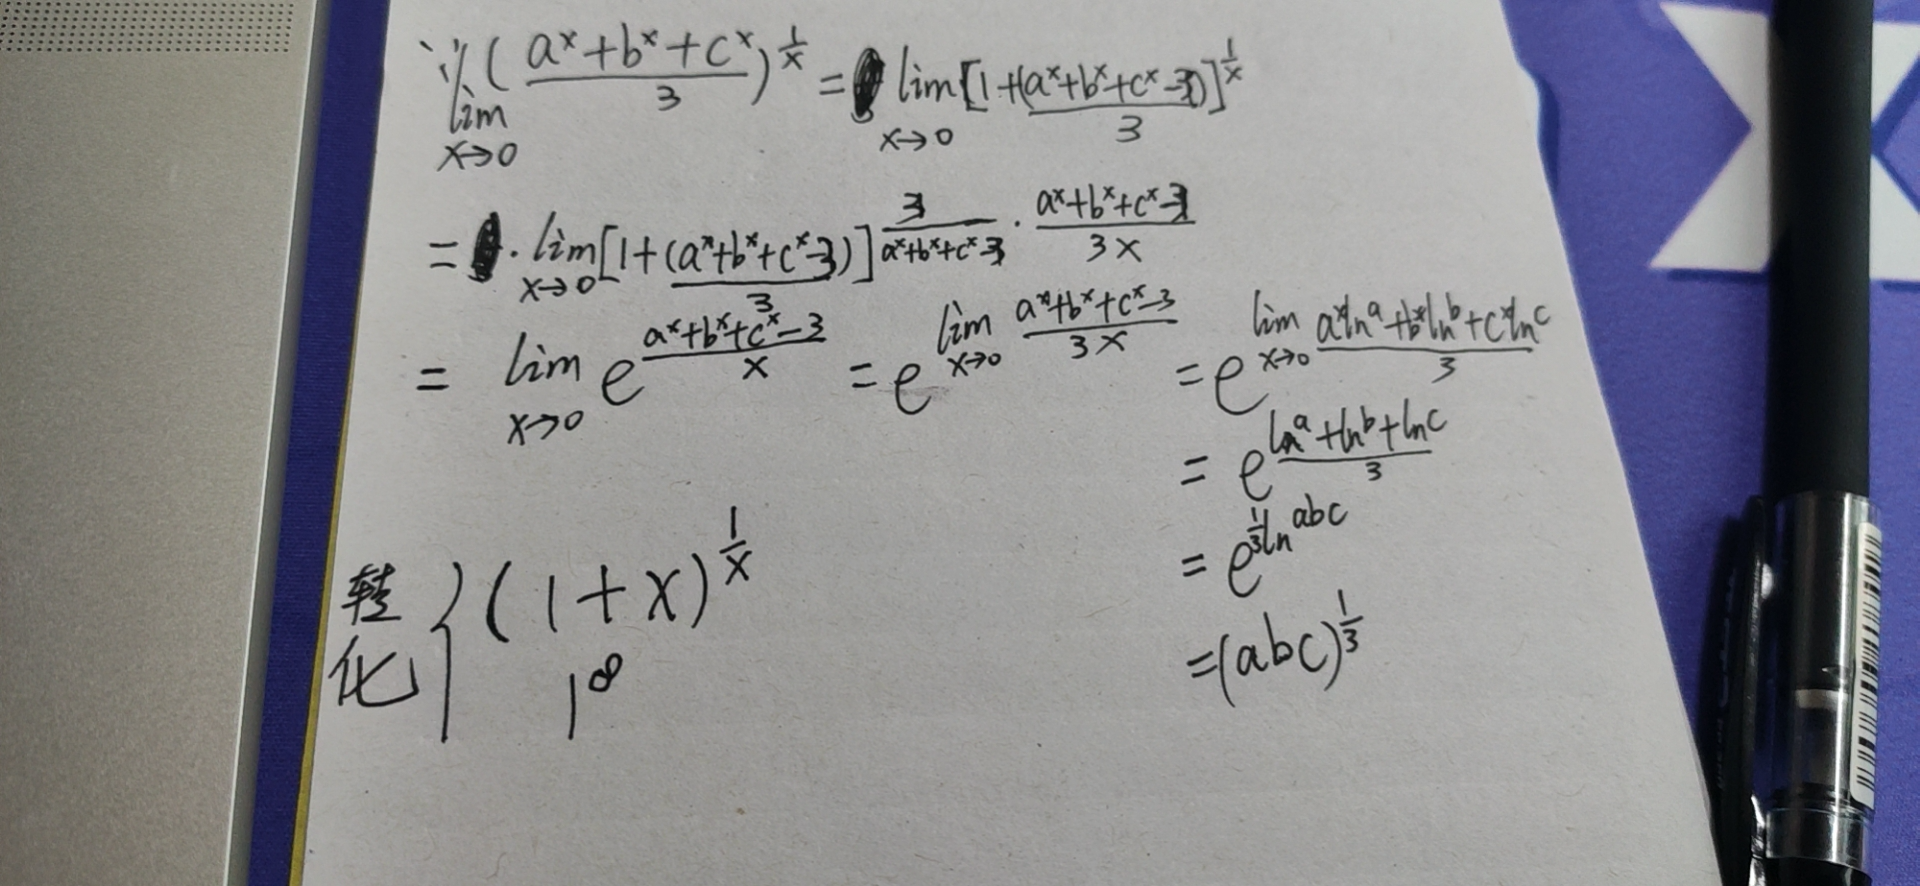 求 lim_{x→0} (\frac{a^x+b^x+c^x}{3})^{\frac{1}{x}} = lim_{x→0} [1+\frac{(a^x+b^x+c^x-3)}{3}]^{\frac{1}{x}}
= · lim_{x→0} [1+\frac{(a^x+b^x+c^x-3)}{3}]^{\frac{3}{a^x+b^x+c^x-3} · \frac{a^x+b^x+c^x-3}{3x}}
= lim_{x→0} e^{\frac{a^x+b^x+c^x-3}{x}} = e^{lim_{x→0} \frac{a^x+b^x+c^x-3}{3x}} = e^{lim_{x→0} \frac{a^x ln^a+b^x ln^b+c^x ln^c}{3}}
= e^{\frac{ln^a+ln^b+ln^c}{3}}
= e^{\frac{1}{3}ln^{abc}}
= (abc)^{\frac{1}{3}}
转化 { (1+x)^{\frac{1}{x}}
1^∞